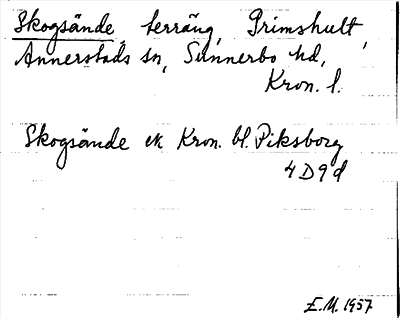 Skogsände, terräng, Grimshult,
Annerstads sn, Sunnerbo hd,
Kron. l.
Skogsände ek Kron. bl. Piksborg
4D9d
E.M. 1957